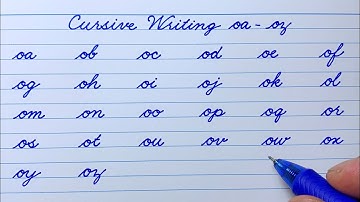 Cursive Writing oa - oz
oa ob oc od oe of
og oh oi oj ok ol
om on oo op oq or
os ot ou ov ow ox
oy oz